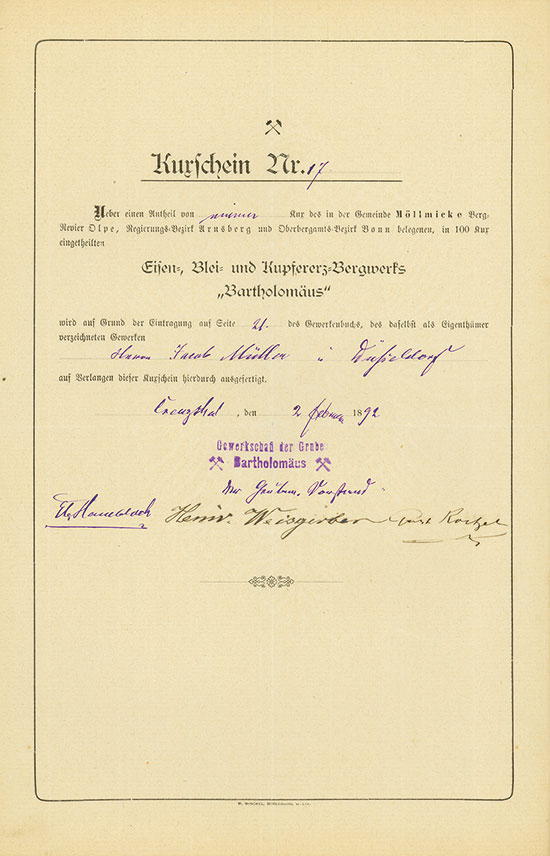 Kuxschein Nr. 17
Ueber einen Antheil von einer Kux des in der Gemeinde Möllmicke Berg-
Revier Olpe, Regierungs-Bezirk Arnsberg und Oberbergamts-Bezirk Bonn belegenen, in 100 Kux
eingetheilten
Eisen-, Blei- und Kupfererz-Bergwerks
„Bartholomäus“
wird auf Grund der Eintragung auf Seite 21. des Gewerkenbuchs, des daselbst als Eigenthümer
verzeichneten Gewerken
Herrn Jacob Müller Düsseldorf
auf Verlangen dieser Kuxschein hierdurch ausgefertigt.
Creuzthal, den 2 Februar 1892
Gewerkschaft der Grube
Bartholomäus
Der Gruben-Vorstand
Heinr. Weisgerber